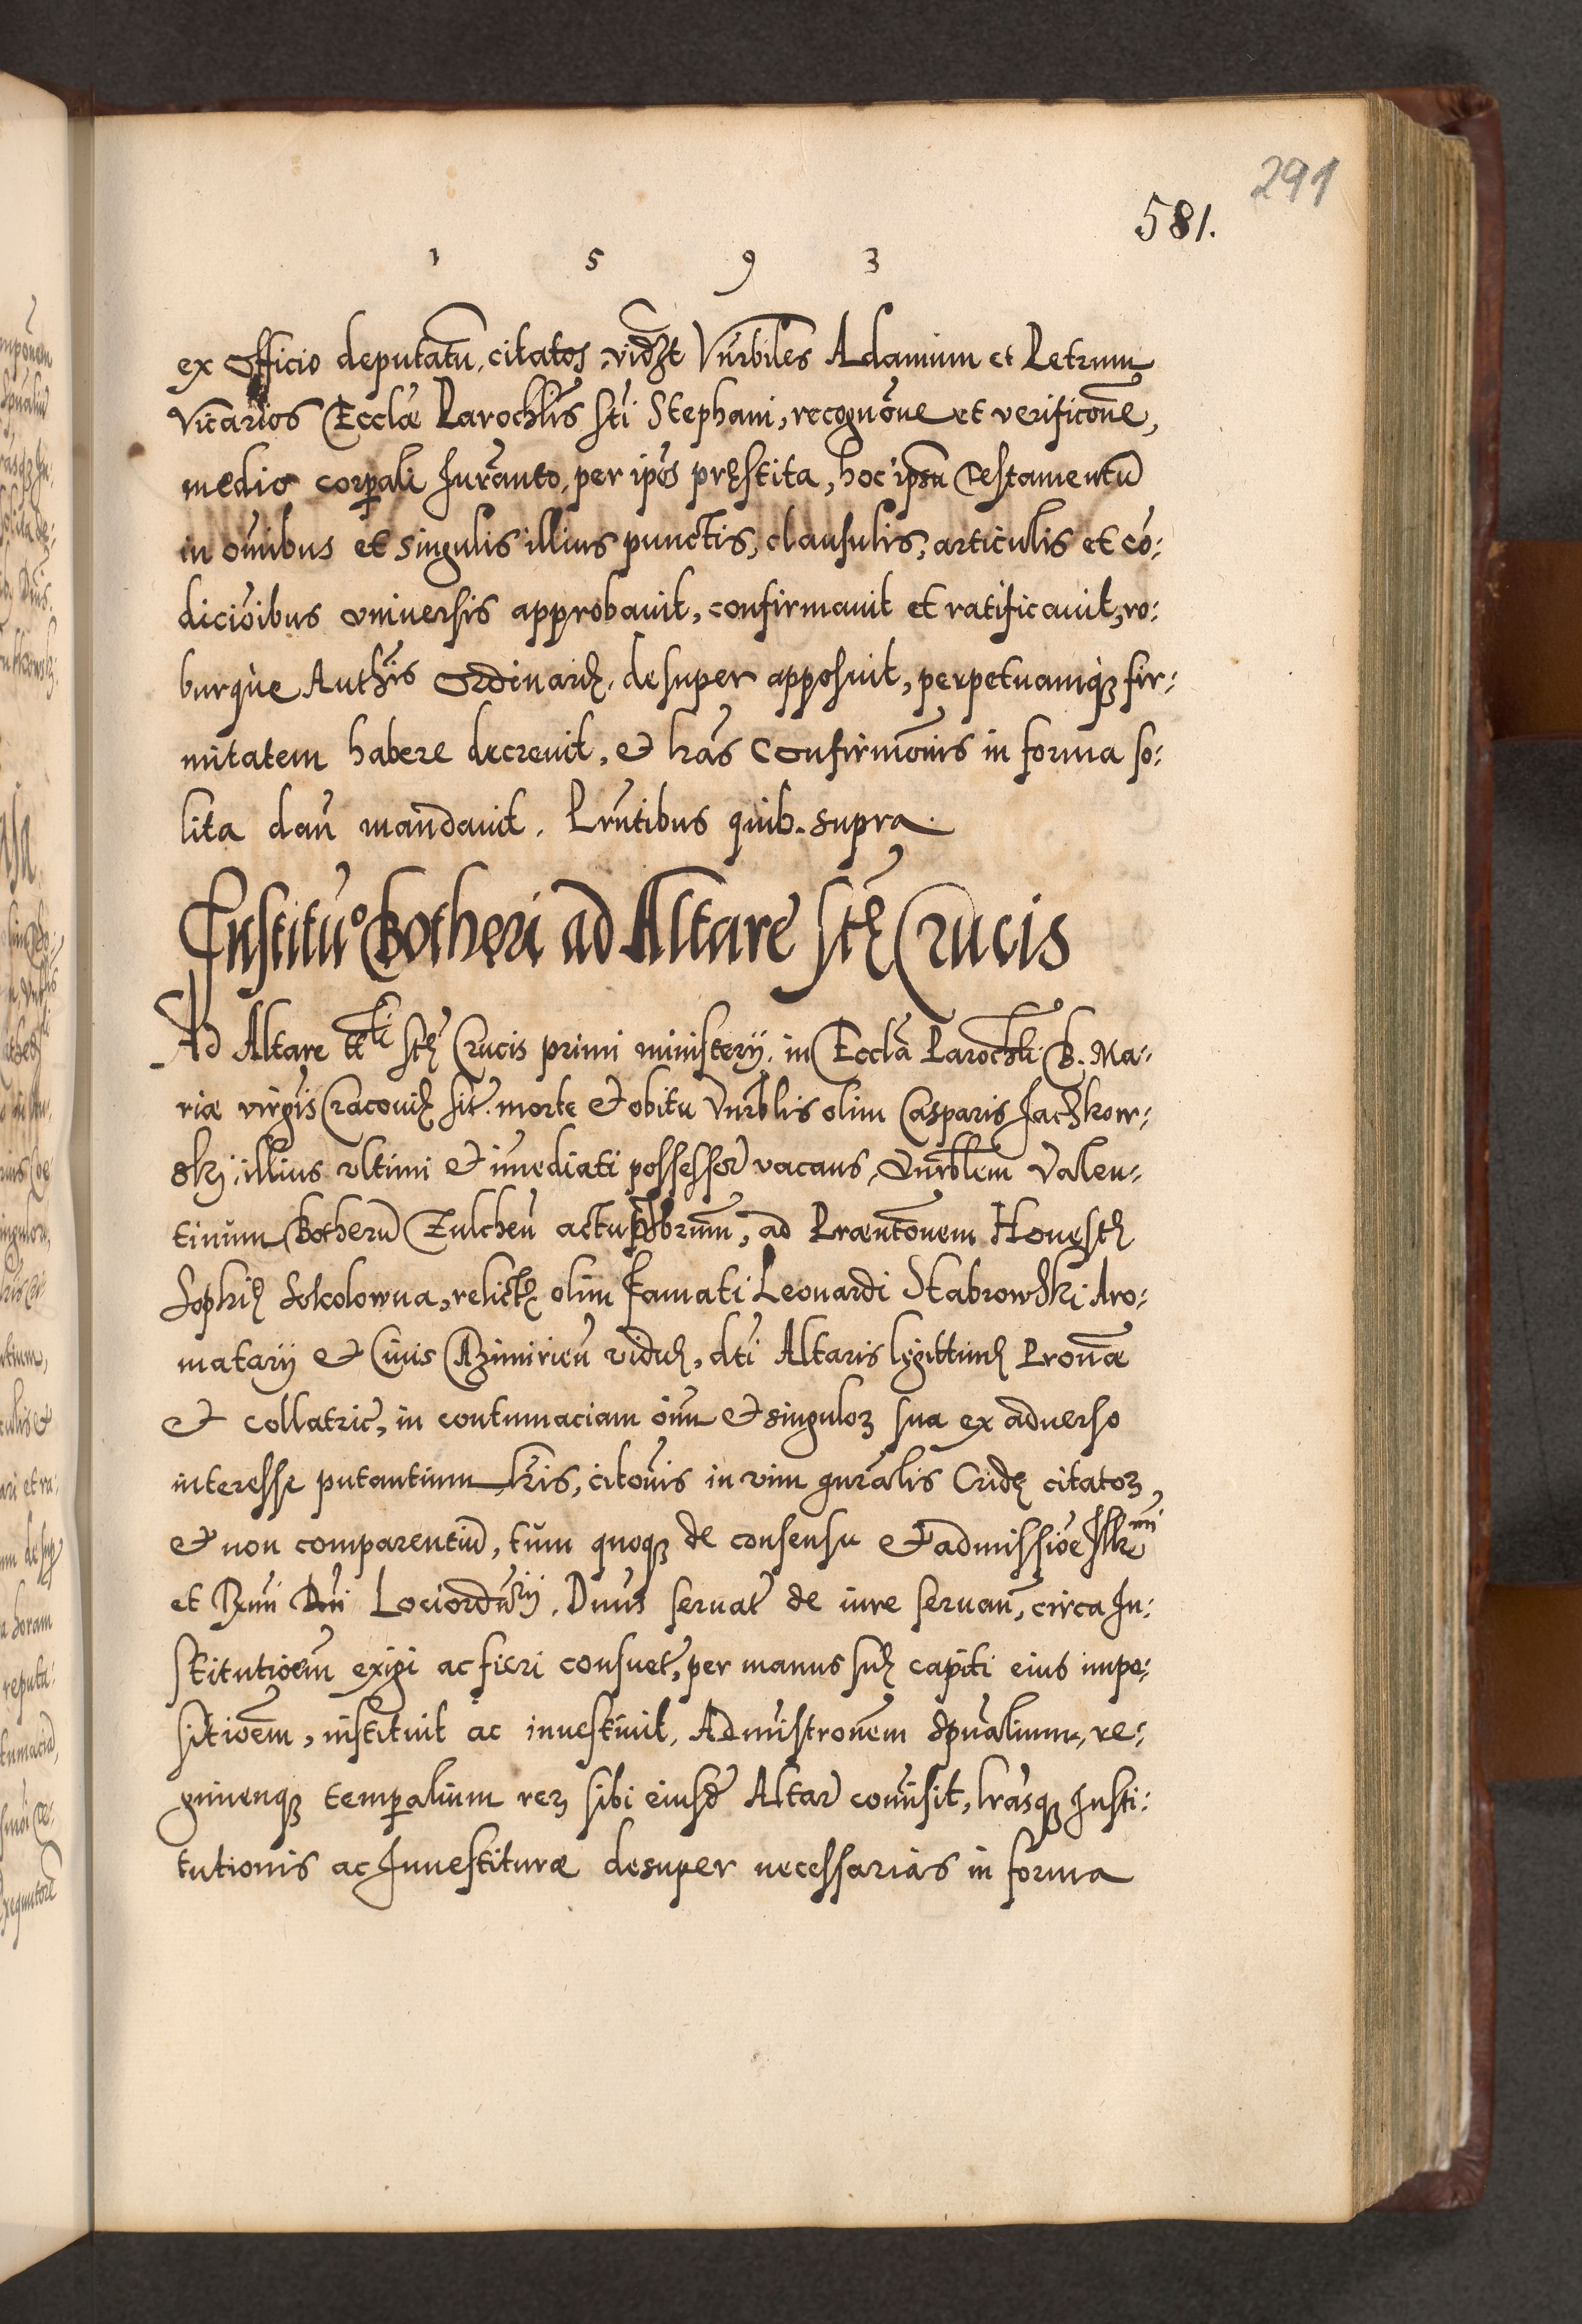 291
581.
1 5 9 3
ex Officio deputatu, citatos, vidzt Vnrbiles Adamum et Petrum
Vicarios Ecclæ Parochlis sti Stephani, recognõne et verificõne,
medio corpali Juranto, per ipos pręstita, hoc ipsu Testamentũ
in omibus et singulis illius punctis, clausulis, articulis et cõ:
dicioibus vniversis approbavit, confirmavit et ratificavit, ro:
burque Authis Ordinarię desuper apposuit, perpetuamqꝫ fir:
mitatem habere decrevit, et lras Confirmõnis in forma so:
lita dari mandavit. Prntibus quib. supra.
Institũo Botheri ad Altare stę Crucis
Ad Altare ttli stę Crucis primi ministerij in Eccla Parochli B. Ma:
riæ virgis Cracovię sit. morte et obitu Vnrblis olim Casparis Jaczkow:
skÿ illius vltimi et imediati possessor vacans, Vnrblem Valen:
tinum Botherũ Tulcheñ actu Pbrum, ad Præntõnem Honestę
Sophię Sokolowna, relictę olim Famati Leonardi Stabrowski Aro:
matarij et Civis Cazimirieñ viduę, dti Altaris legittimę Pronæ
et collatric, in contumaciam oim et singuloꝝ sua ex adverso
interesse putantium lris, citõnis in vim gnralis Cridę citatoꝝ,
et non comparentiũ, tum quoqꝫ de consensu et admissiõe Illrmi
et Rmi Dni Lociordinrij. Dnus servat de iure servan, circa In:
stitutioem exigi ac fieri consuet, per manus suę capiti eius impo:
sitioem, instituit ac investivit, Administronem spualium, re:
gimenqꝫ temporalium reꝝ sibi eiusd Altar comisit, lrasqꝫ Insti:
tutionis ac Investituræ desuper necessarias in forma